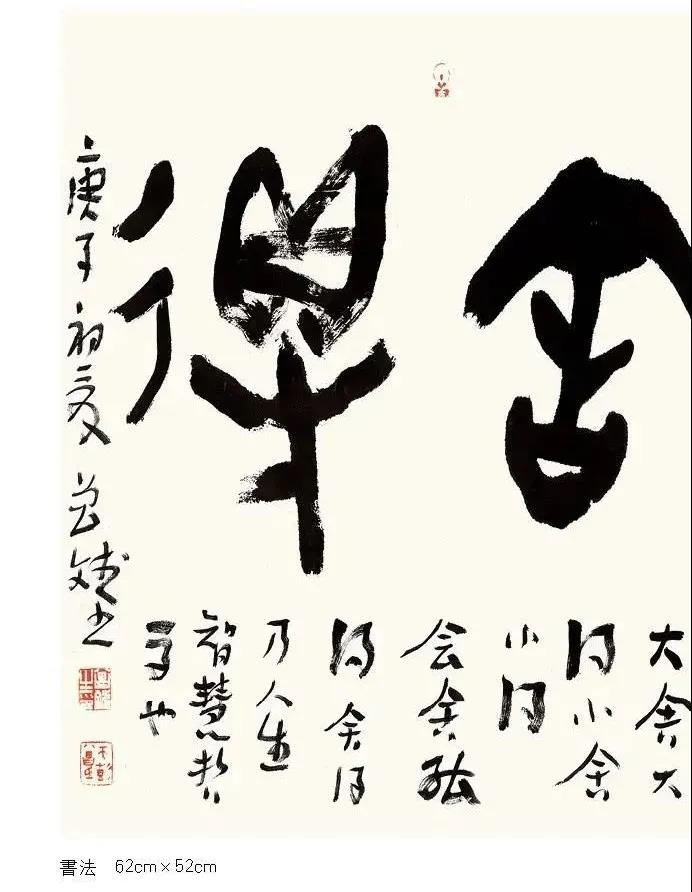 舍得
大舍大
得小舍
小得
会舍
得舍得
乃人生
智慧哲
学也
庚子初夏 斌书
書法 62cm×52cm